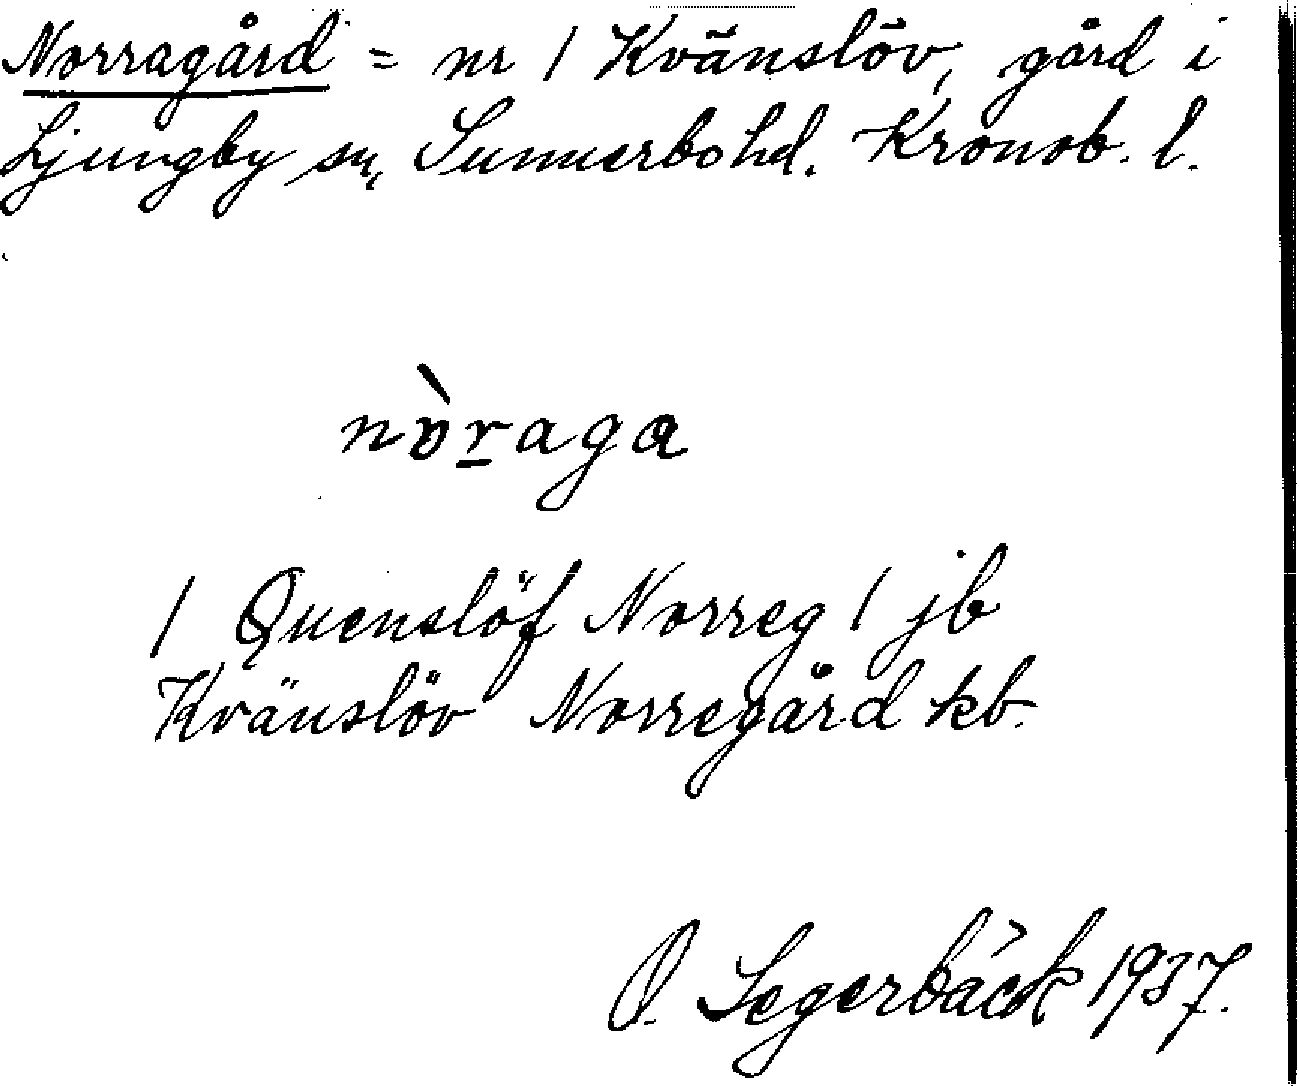 Norragård = nr 1 Kvänslöv, gård i
Ljungby sn, Sunnerbo hd. Kronob. l.
nòr̲aga
1 Quenslöf Norreg 1 jb
Kvänslöv Norregård kb.
O. Segerbäck 1937.